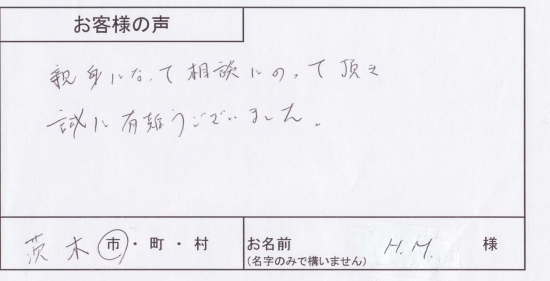 お客様の声
親身になって相談にのって頂き
誠に有難うございました。
茨木 市・町・村
お名前 H.M. 様
(名字のみで構いません)